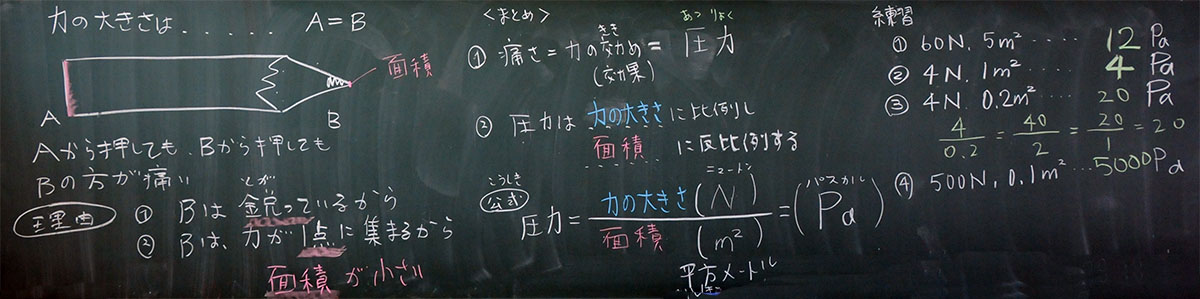 力の大きさは . . . . . . A=B
面積
A
B
Aから押しても、Bから押しても
Bの方が痛い
理由
とが
① Bは 鋭っているから
② Bは、力が1点に集まるから
面積が小さい
<まとめ>
あつりょく
きき
① 痛さ=力の効め=圧力
(効果)
② 圧力は 力の大きさに比例し
面積 に反比例する
こうしき
公式
ニュートン
パスカル
圧力= 力の大きさ(N) / 面積(m²) =(Pa)
平方メートル
練習
① 60N, 5m² .... 12 Pa
② 4N, 1m² .... 4 Pa
③ 4N, 0.2m² .... 20 Pa
4/0.2 = 40/2 = 20/1 = 20
④ 500N, 0.1m² ...5000Pa